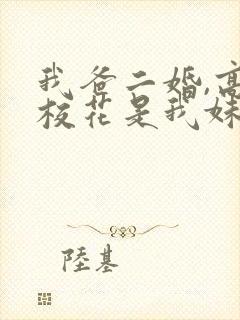 我爸二婚,高
校花是我妹
陸基